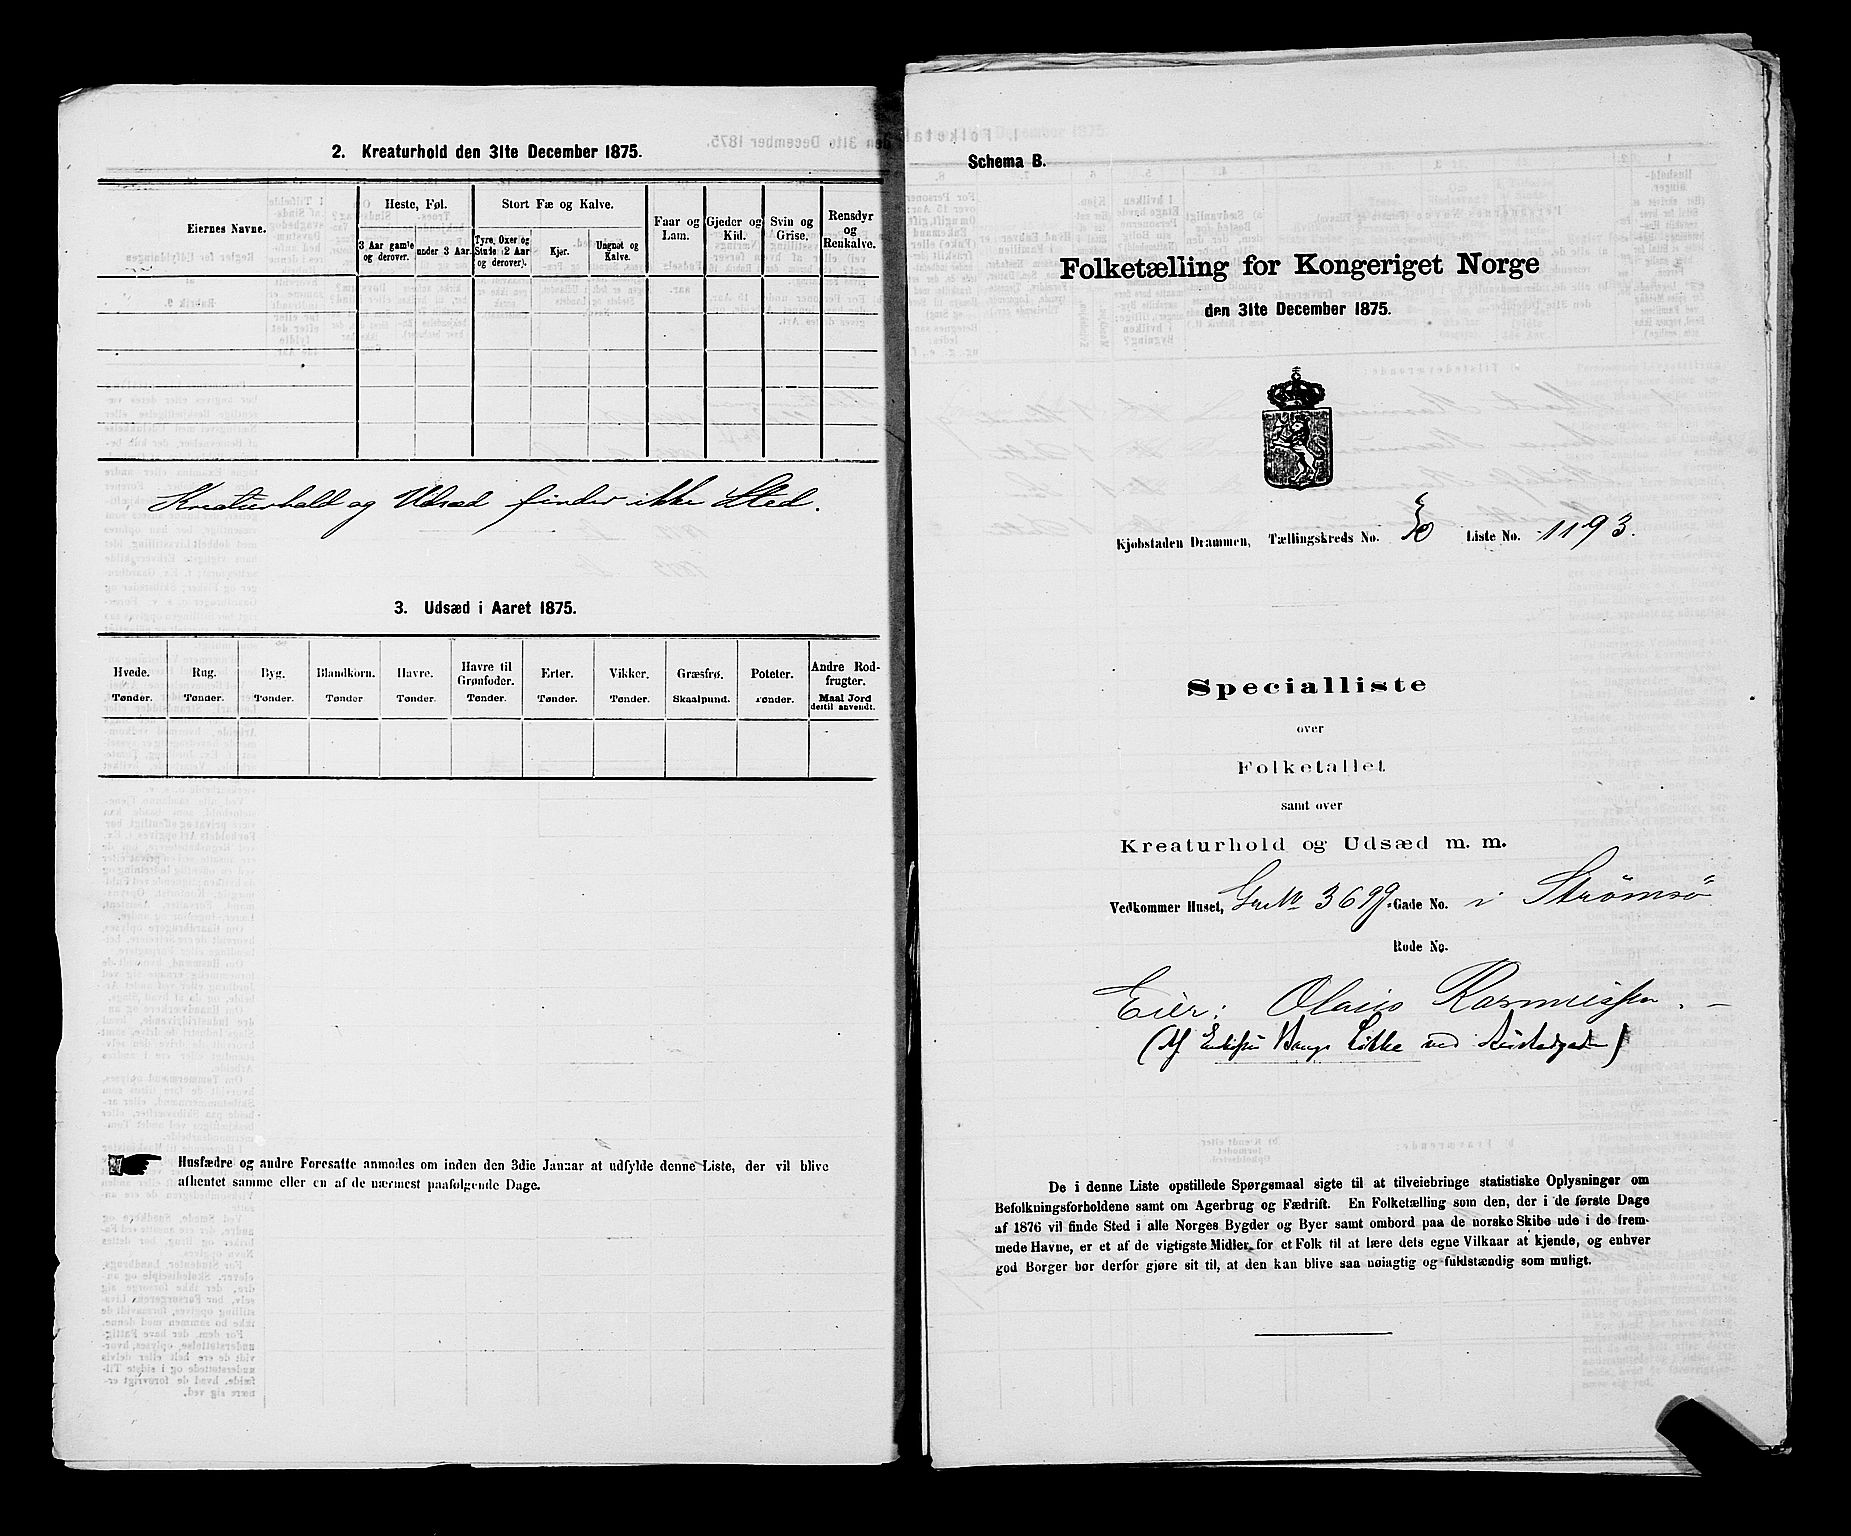 2. Kreaturhold den 31te December 1875.
Eiernes Navne.
Heste, Føl.
3 Aar gamle og derover.
under 3 Aar.
Stort Fæ og Kalve.
Tyre, Oxer og Stude (2 Aar og derover).
Kjer.
Ungnøt og Kalve.
Faar og Lam.
Gjeder og Kid.
Svin og Grise.
Rensdyr og Renkalve.
Kreaturhold og Udsæd finder ikke Sted.
3. Udsæd i Aaret 1875.
Hvede. Tønder.
Rug. Tønder.
Byg. Tønder.
Blandkorn. Tønder
Havre. Tønder.
Havre til Grønfoder. Tønder.
Erter. Tønder.
Vikker. Tønder.
Græsfrø. Skaalpund.
Poteter. Tønder.
Andre Rodfrugter. Maal Jord dertil anvendt.
Husfædre og andre Foresatte anmodes om inden den 3die Januar at udfylde denne Liste, der vil blive
afhentet samme eller en af de nærmest paafølgende Dage.
Schema B.
Folketælling for Kongeriget Norge
den 31te December 1875.
Kjøbstaden Drammen, Tællingskreds No. Liste No. 1193.
Specialliste
over
Folketallet
samt over
Kreaturhold og Udsæd m. m.
Vedkommer Huset, 369 Gade No. i Strømsø
Rode No.
Eier: Olaus Rasmussen.
(Af Løkke ved
De i denne Liste opstillede Spørgsmaal sigte til at tilveiebringe statistiske Oplysninger om
Befolkningsforholdene samt om Agerbrug og Fædrift. En Folketælling som den, der i de første Dage
af 1876 vil finde Sted i alle Norges Bygder og Byer samt ombord paa de norske Skibe ude i de frem-
mede Havne, er et af de vigtigste Midler for et Folk til at lære dets egne Vilkaar at kjende, og enhver
god Borger bør derfor gjøre sit til, at den kan blive saa nøiagtig og fuldstændig som muligt.